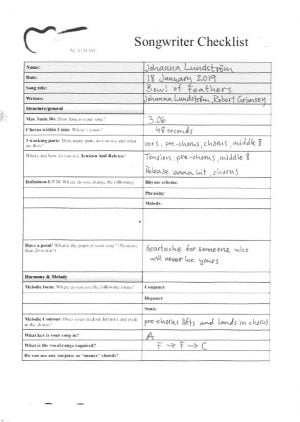 ACADEMY
Songwriter Checklist
Name: Johanna Lundström
Date: 18 January 2019
Song title: Bowl of Feathers
Writers: Johanna Lundström, Robert
Structure/general
Max 3min 30s: How long is your song? 3.06
Chorus within 1 min. Where's yours? 48 seconds
5 working parts: How many parts do you use and what are they? vers, pre-chorus, chorus, middle 8
Where and how do you use Tension And Release? Tension: pre-chorus, middle 8
Release: aaaa bit, chorus
Definition Where do you change the following: Rhyme scheme:
Phrasing:
Melody:
Have a point! What is the point of your song? (No more than 20 words!) Heartache for someone who
will never be yours
Harmony & Melody
Melodic form: Where do you use the following forms? Conjunct:
Disjunct:
Static:
Melodic Contour: Does your melody lift into and peak in the chorus? pre-chorus lifts and lands in chorus
What key is your song in? A
What is the vocal range required? F → F → C
Do you use any surprise or "money" chords?